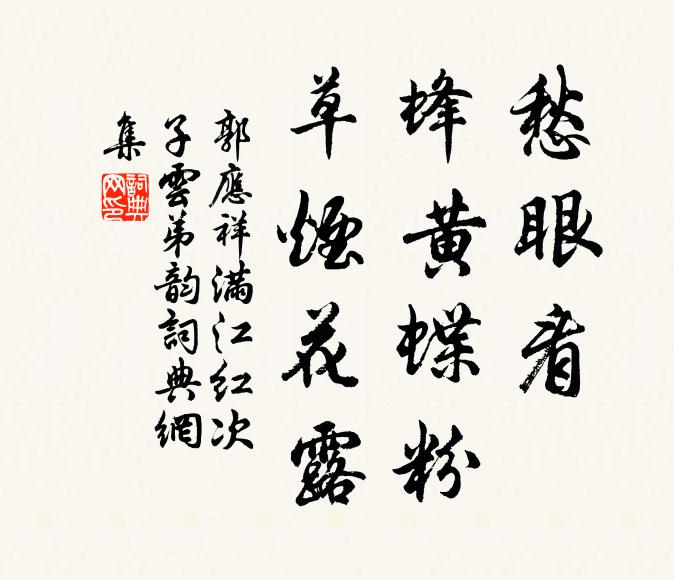 愁眼看
蜂黄蝶粉
草煙花露
郭應祥滿江紅次
子雲弟韵詞典網
集
詞典
网印